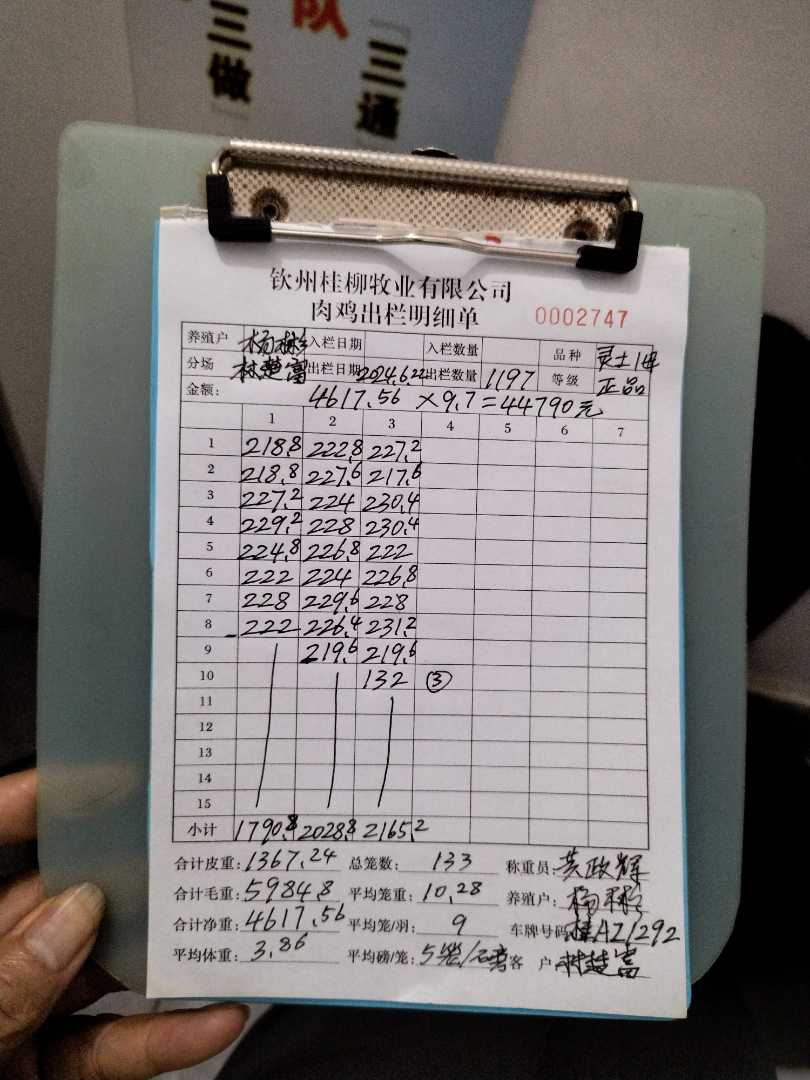 三做
队
「三通
钦州桂柳牧业有限公司
肉鸡出栏明细单 0002747
养殖户 入栏日期 入栏数量 品种
分场 林楚富 出栏日期 2024.6.22 出栏数量 1197 等级 正品
金额: 4617.56 × 9.7 = 44790元
1 2 3 4 5 6 7
1 218.8 222.8 227.2
2 218.8 227.6 217.6
3 227.2 224 230.4
4 229.2 228 230.4
5 224.8 226.8 222
6 222 224 226.8
7 228 229.6 228
8 222 226.4 231.2
9 219.6 219.6
10 132 ③
11
12
13
14
15
小计 1790.8 2028.8 2165.2
合计皮重: 1367.24 总笼数: 133 称重员: 黄政辉
合计毛重: 5984.8 平均笼重: 10.28 养殖户:
合计净重: 4617.56 平均笼/羽: 9 车牌号码 桂AZ1292
平均体重: 3.86 平均磅/笼: 客户 林楚富